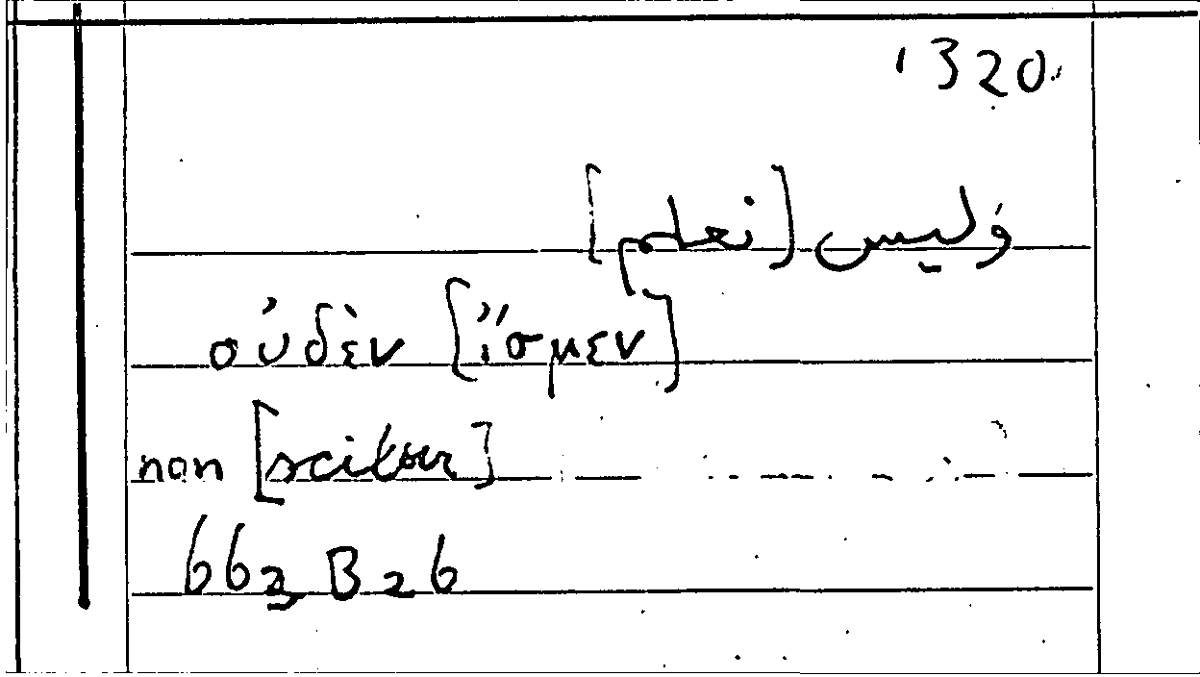 1320.
وليس [نعلم]
οὐδὲν [ἴσμεν]
non [scitur]
663 B 26